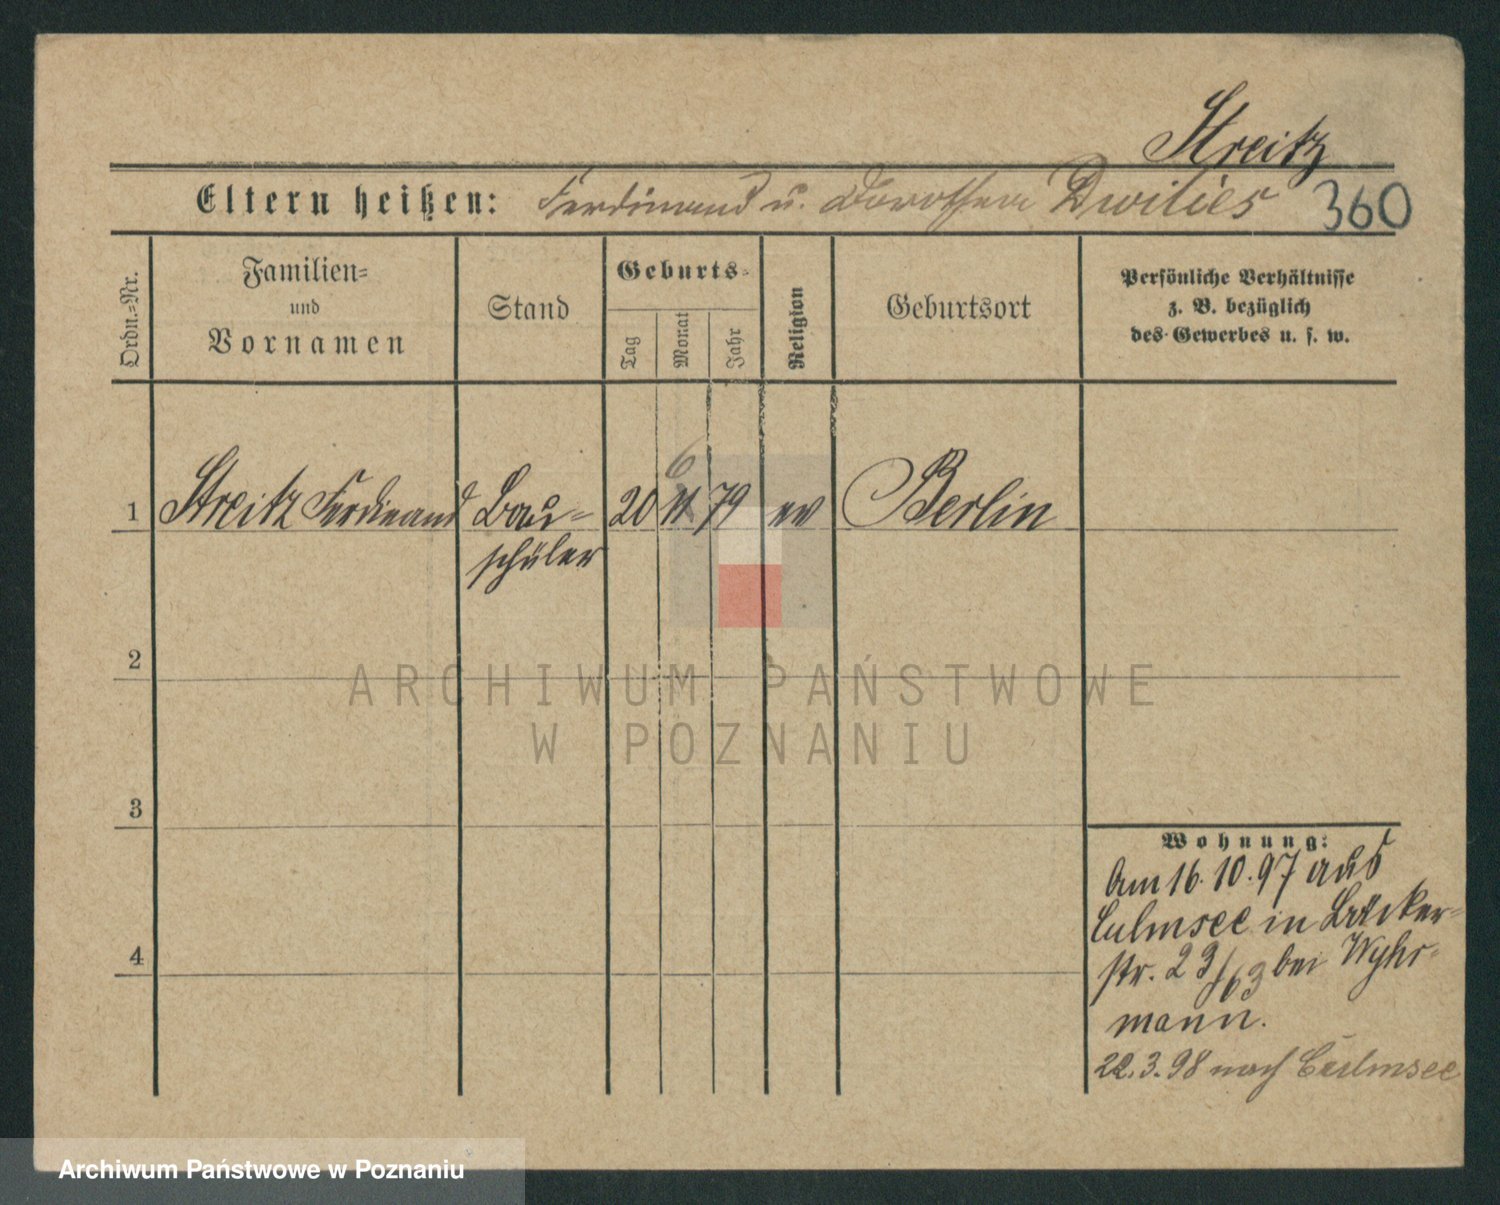 Streitz
Eltern heißen: Ferdinand u. Dorothea Dwilies 360
Ordn.-Nr.
Familien-
und
Vornamen
Stand
Geburts-
Tag
Monat
Jahr
Religion
Geburtsort
Persönliche Verhältnisse
z. B. bezüglich
des Gewerbes u. s. w.
1 Streitz Ferdinand Bau- 20 6 79 ev Berlin
schüler
2
3
4
ARCHIWUM PAŃSTWOWE
W POZNANIU
Wohnung:
Am 16.10.97 aus
Culmsee in Bäcker-
str. 23/63 bei Wyhr-
mann.
22.3.98 nach Culmsee
Archiwum Państwowe w Poznaniu